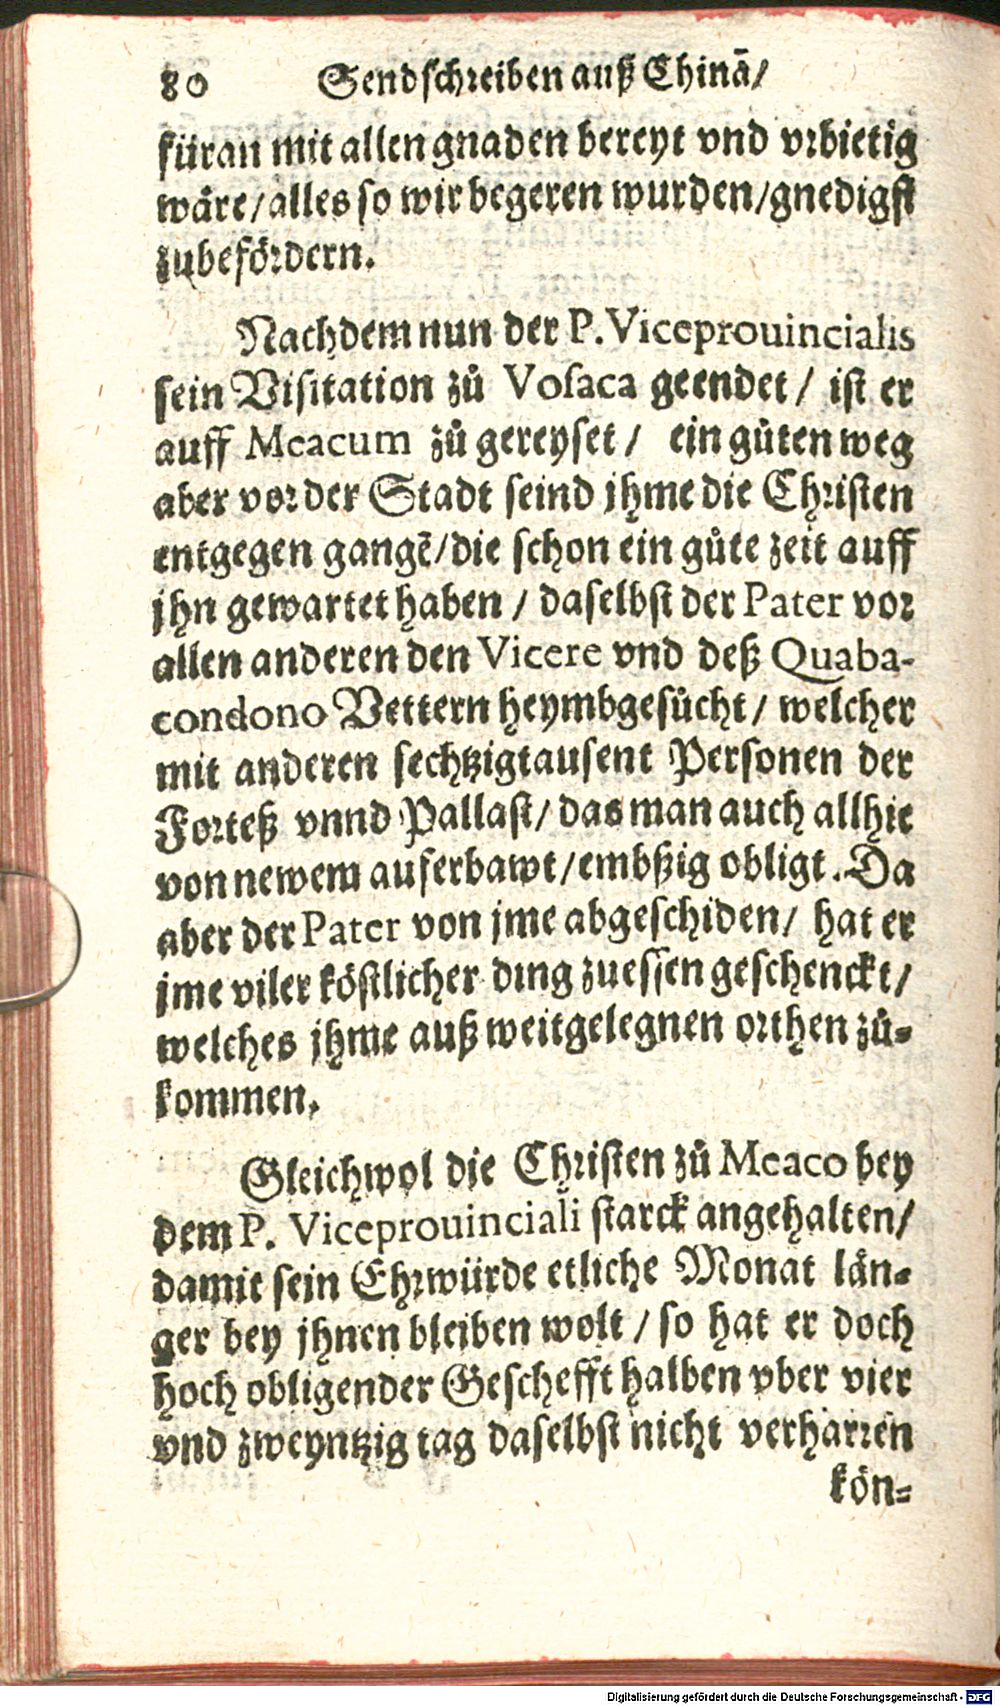 80 Sendschreiben auß Chinā/
füran mit allen gnaden bereyt vnd vrbietig
wäre/alles so wir begeren wurden/gnedigst
zubefördern.
Nachdem nun der P. Viceprouincialis
sein Visitation zů Vosaca geendet/ ist er
auff Meacum zů gereyset/ ein gůten weg
aber vor der Stadt seind jhme die Christen
entgegen gangē/die schon ein gůte zeit auff
jhn gewartet haben / daselbst der Pater vor
allen anderen den Vicere vnd deß Quaba-
condono Vettern heymbgesůcht/ welcher
mit anderen sechtzigtausent Personen der
Forteß vnnd Pallast/ das man auch allhie
von newem auferbawt/embßzig obligt. Da
aber der Pater von jme abgeschiden/ hat er
jme viler köstlicher ding zuessen geschenckt/
welches jhme auß weitgelegnen orthen zů-
kommen.
Gleichwol die Christen zů Meaco bey
dem P. Viceprouinciali starck angehalten/
damit sein Ehrwürde etliche Monat län-
ger bey jhnen bleiben wolt / so hat er doch
hoch obligender Geschefft halben vber vier
vnd zweyntzig tag daselbst nicht verharren
kön-
Digitalisierung gefördert durch die Deutsche Forschungsgemeinschaft - DFG